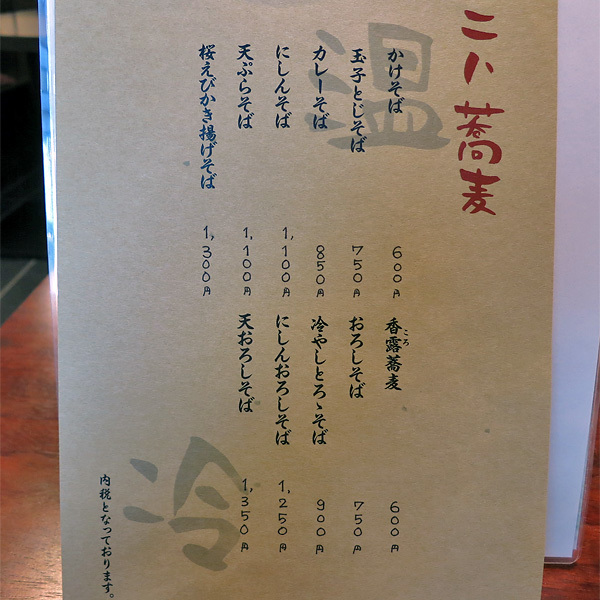 二八蕎麦
温
かけそば 600円
玉子とじそば 750円
カレーそば 850円
にしんそば 1,100円
天ぷらそば 1,100円
桜えびかき揚げそば 1,300円
冷
ころ
香露蕎麦 600円
おろしそば 750円
冷やしとろゝそば 900円
にしんおろしそば 1,250円
天おろしそば 1,350円
内税となっております。